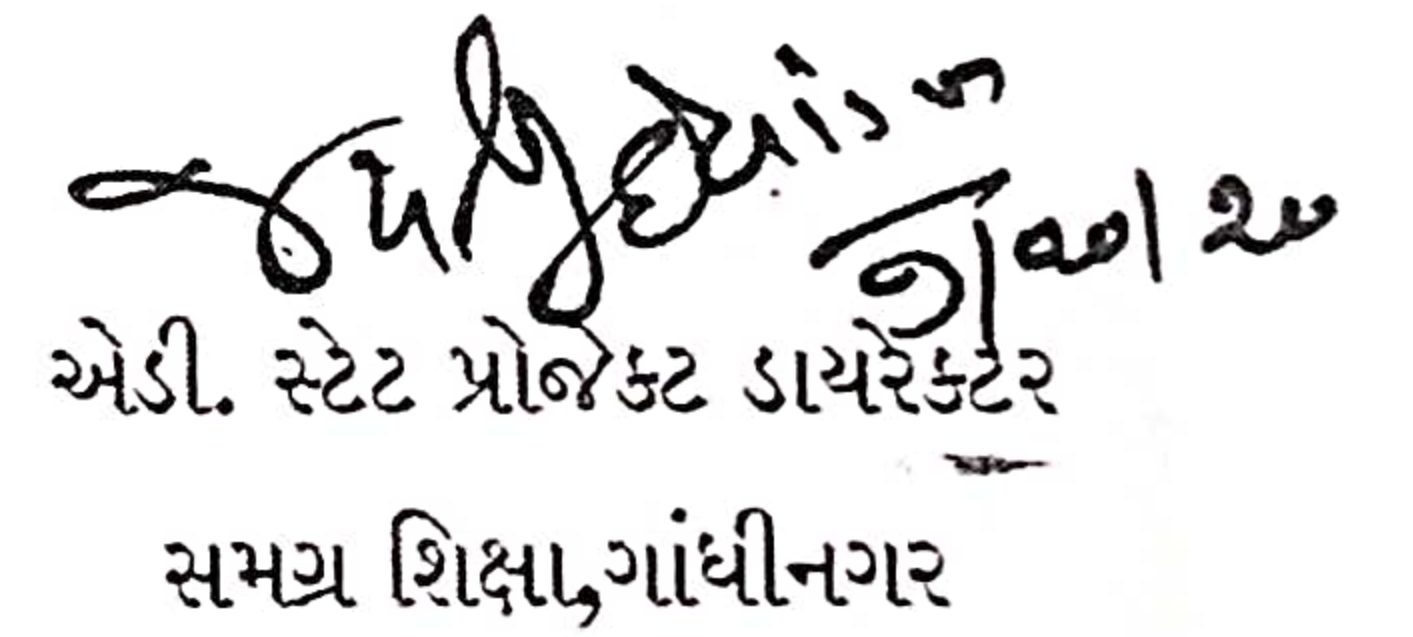 એડી. સ્ટેટ પ્રોજેક્ટ ડાયરેક્ટર
સમગ્ર શિક્ષા,ગાંધીનગર